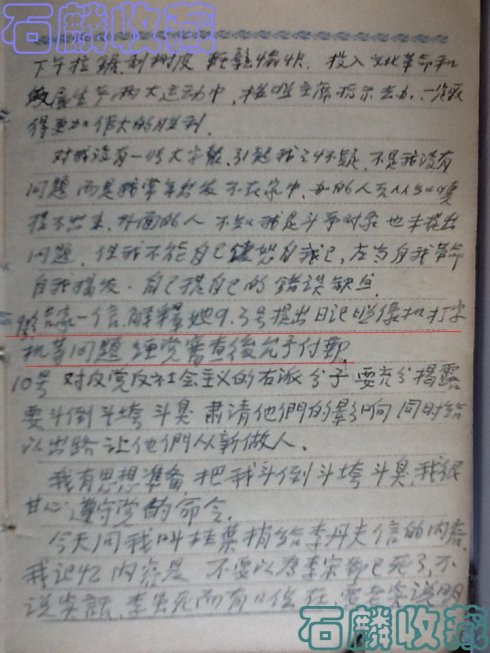 石麟收藏
下午拉锯剥树皮 轻松愉快. 投入文化革命和
发展生产两大运动中, 按照主席指示去办, 一定取
得更加伟大的胜利.
对我没有一张大字报, 引起我之怀疑, 不是我没有
问题 而是我常年出发 不在家中,
提不出来, 外面的人 不知我是斗争对象 也未提出
问题, 但我不能自己饶恕自己, 应当自我革命
自我揭发. 自己提自己的错误缺点.
一信解释她9.3号提出日记照像机打字
机等问题 经党审查後允予付邮.
10号 对反党反社会主义的右派分子 要充分揭露
要斗倒斗垮斗臭 肃清他們的影响 同时给
以出路 让他們从新做人.
我有思想准备 把我斗倒斗垮斗臭, 我很
甘心 遵守党的命令.
今天问我叫桂葉梢给李丹夫信的内容,
我记忆 内容是 不要以为李宋都已死了, 不
说实話, 李虽死而有 在, 说明
石麟收藏